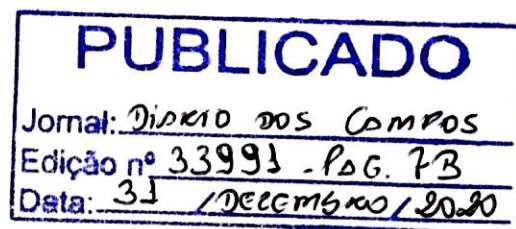 PUBLICADO
Jornal: DIARIO DOS CAMPOS
Edição nº 33991 - PAG. 7B
Data: 31 / DEZEMBRO / 2020